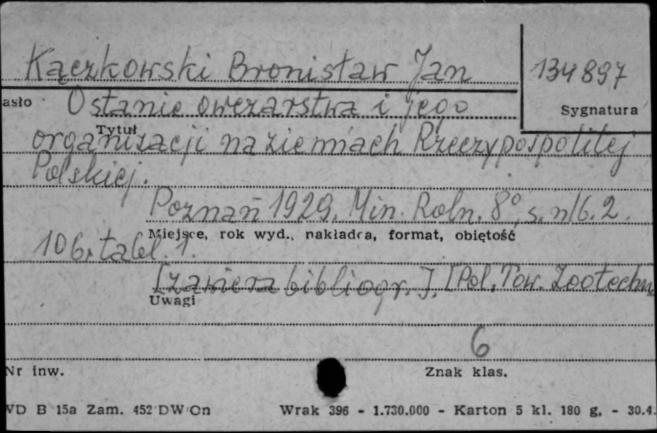 Kączkowski Bronisław Jan
134897
asło
Sygnatura
O stanie owczarstwa i jego
Tytuł
organizacji na ziemiach Rzeczypospolitej
Polskiej.
Poznań 1929. Min. Roln. 8°, s. nlb. 2.
Miejsce, rok wyd., nakładca, format, objętość
106, tabl. 1.
[zawiera bibliogr.]. [Pol. Tow. Zootechn
Uwagi
6
Nr inw.
Znak klas.
WD B 15a Zam. 452 DW On
Wrak 396 - 1.730.000 - Karton 5 kl. 180 g. - 30.4.